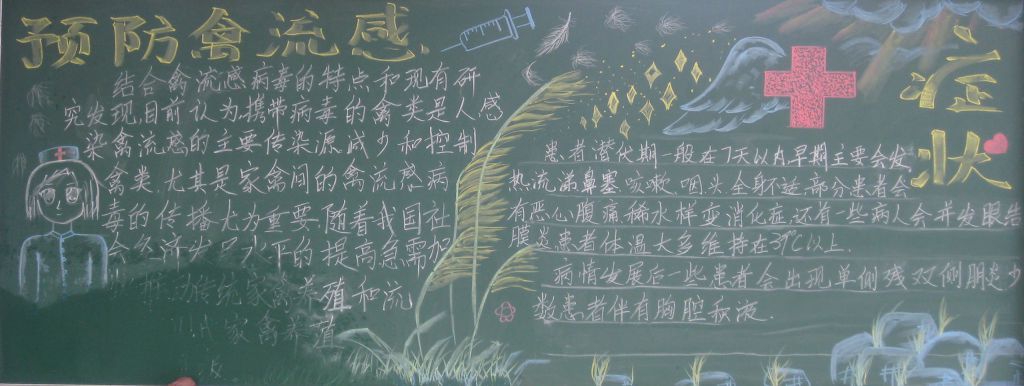 预防禽流感
结合禽流感病毒的特点和现有研
突发现,目前认为,携带病毒的禽类是人感
染禽流感的主要传染源.减少和控制
禽类.尤其是家禽间的禽流感病
毒的传播尤为重要.随着我国社
会 水下的提高急需加
传统家禽养殖和流
家禽养殖
症状
患者潜伏期一般在7天以内早期主要会发
热流涕鼻塞.咳嗽.咽头全身不适.部分患者会
有恶心腹痛稀水样变消化症.还有一些病人会并发眼结
膜炎患者体温大多维持在39℃以上.
病情发展后一些患者会出现单侧残双侧肺炎少
数患者伴有胸腔积液.